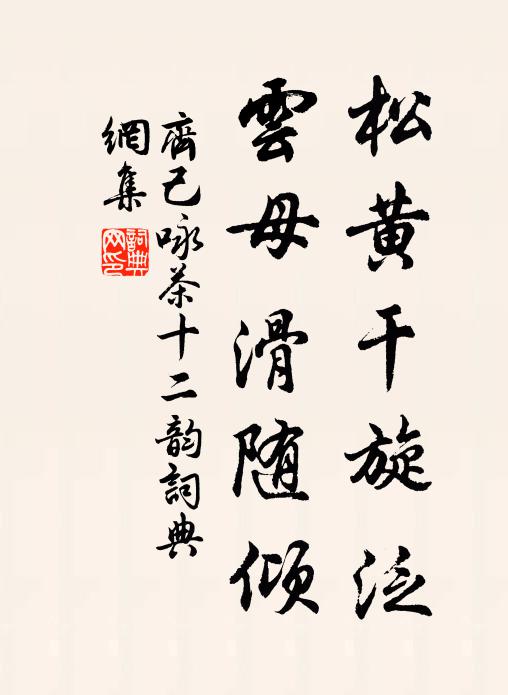 松黄干旋泛
雲母滑随倾
齊己咏茶十二韵詞典
網集
詞典
网印